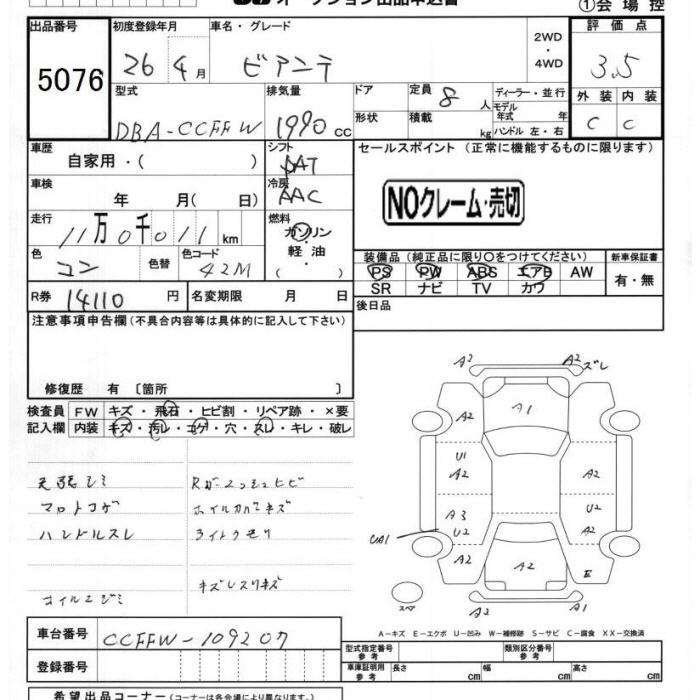 オークション出品申込書
①会場控
出品番号 初度登録年月 車名・グレード 2WD・4WD 評価点
5076 26年4月 ビアンテ 3.5
型式 排気量 ドア 定員 8人 ディーラー・並行 外装 内装
DBA-CCFFW 1990cc 形状 積載 kg モデル年式 年 ハンドル 左・右 C C
車歴 自家用・( ) シフト AT セールスポイント (正常に機能するものに限ります)
車検 年 月( 日) 冷房 AAC
NOクレーム・売切
走行 11万0千011km 燃料 ガソリン・軽油・( )
色 コン 色替 色コード 42M
装備品(純正品に限り○をつけてください) 新車保証書
PS PW ABS エアB AW 有・無
SR ナビ TV カワ
R券 14110円 名変期限 月 日
後日品
注意事項申告欄(不具合内容等は具体的に記入して下さい)
修復歴 有 〔箇所 〕
検査員 FW キズ・飛石・ヒビ割・リペア跡・×要
記入欄 内装 キズ・汚レ・コゲ・穴・スレ・キレ・破レ
天張シミ
マットコゲ
ハンドルスレ
ライトクモリ
A2 A2 ズレ
A2 A1 A2
U1 A2 A2
A3 U2 U2 A2
UA1
A2 A2 E
スペア
A2 A1
A-キズ E-エクボ U-凹み W-補修跡 S-サビ C-腐食 XX-交換済
車台番号 CCFFW-109207
登録番号
型式指定番号 参考 類別区分番号 参考
車庫証明用 参考 長さ cm 幅 cm 高さ cm
希望出品コーナー(コーナーは各会場により異なります。)